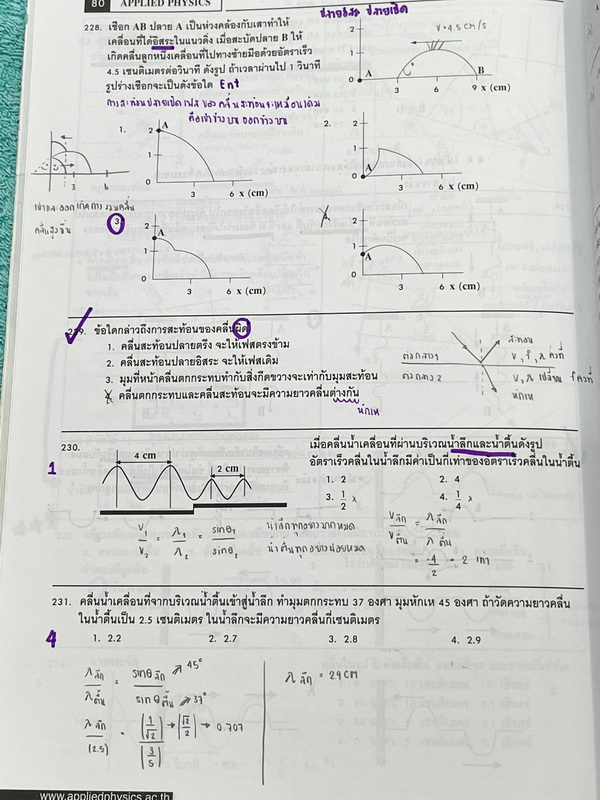 80 APPLIED PHYSICS
ปลายอิสระ ปลายเปิด
228. เชือก AB ปลาย A เป็นห่วงคล้องกับเสาทำให้
เคลื่อนที่ได้อิสระในแนวดิ่ง เมื่อสะบัดปลาย B ให้
เกิดคลื่นลูกหนึ่งเคลื่อนที่ไปทางซ้ายมือด้วยอัตราเร็ว
4.5 เซนติเมตรต่อวินาที ดังรูป ถ้าเวลาผ่านไป 1 วินาที
รูปร่างเชือกจะเป็นดังข้อใด Ent
การสะท้อนปลายเปิดเฟสของคลื่นสะท้อนจะเหมือนเดิม
คือเข้าข้างบน ออกข้างบน
V = 4.5 cm/s
2
1
0 A 3 6 B 9 x (cm)
1. 2 A
1
0
3 6 x (cm)
2. 2
1
0 A
3 6 x (cm)
3 6
คลื่นสูงขึ้น
3. 2
A
1
0
3 6 x (cm)
4. 2
1
A
0
3 6 x (cm)
229. ข้อใดกล่าวถึงการสะท้อนของคลื่นผิด
1. คลื่นสะท้อนปลายตรึง จะให้เฟสตรงข้าม
2. คลื่นสะท้อนปลายอิสระ จะให้เฟสเดิม
3. มุมที่หน้าคลื่นตกกระทบทำกับสิ่งกีดขวางจะเท่ากับมุมสะท้อน
4. คลื่นตกกระทบและคลื่นสะท้อนจะมีความยาวคลื่นต่างกัน
หักเห
ตัวกลาง 1
ตัวกลาง 2
สะท้อน
V, f, λ คงที่
V, λ เปลี่ยน f คงที่
หักเห
230.
1
4 cm
2 cm
เมื่อคลื่นน้ำเคลื่อนที่ผ่านบริเวณน้ำลึกและน้ำตื้นดังรูป
อัตราเร็วคลื่นในน้ำลึกมีค่าเป็นกี่เท่าของอัตราเร็วคลื่นในน้ำตื้น
1. 2 2. 4
3. 1/2 λ 4. 1/4 λ
V1/V2 = λ1/λ2 = sinθ1/sinθ2
น้ำลึกทุกอย่างมากหมด
น้ำตื้นทุกอย่างน้อยหมด
Vลึก/Vตื้น = λลึก/λตื้น
= 4/2 = 2 เท่า
231. คลื่นน้ำเคลื่อนที่จากบริเวณน้ำตื้นเข้าสู่น้ำลึก ทำมุมตกกระทบ 37 องศา มุมหักเห 45 องศา ถ้าวัดความยาวคลื่น
ในน้ำตื้นเป็น 2.5 เซนติเมตร ในน้ำลึกจะมีความยาวคลื่นกี่เซนติเมตร
4
1. 2.2 2. 2.7 3. 2.8 4. 2.9
λลึก/λตื้น = sinθลึก/sinθตื้น 45° 37°
λลึก/(2.5) = (1/√2)/(3/5) → (√2/2) → 0.707
λลึก = 2.9 cm
www.appliedphysics.ac.th